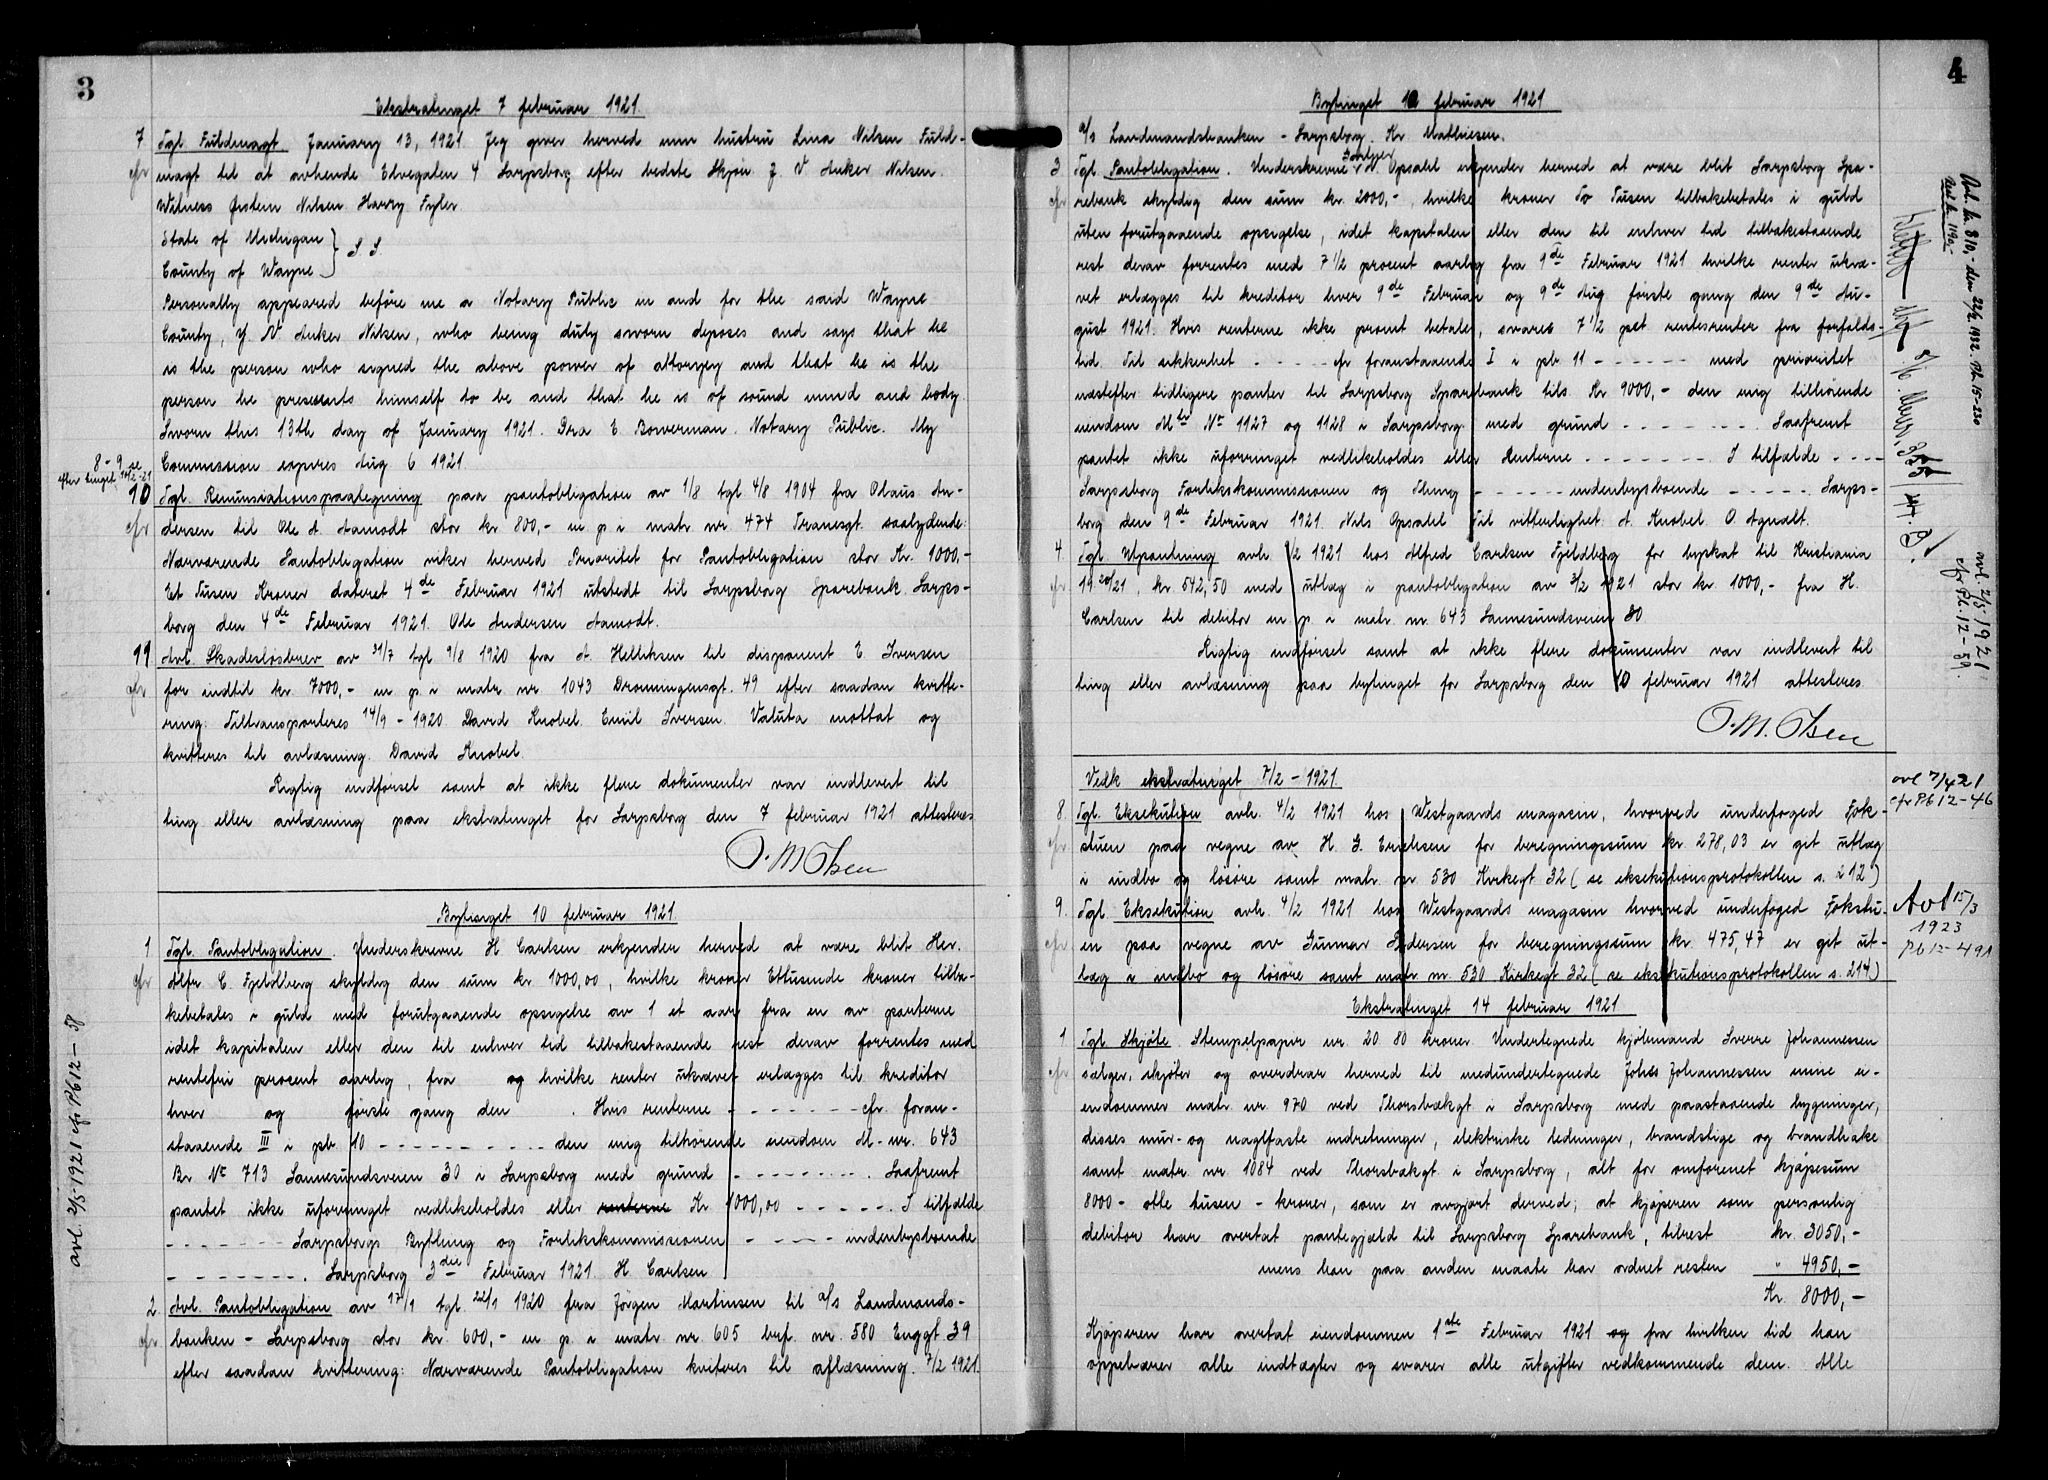 3
Ekstratinget 7 februar 1921.
7 Tgl. Fuldmagt. January 13, 1921. Jeg giver herved min hustru Lina Nilsen Fuld-
cfr magt til at avhende Elvegaten 4 Sarpsborg efter bedste Skjøn. J. V Anker Nilsen.
Witness Østein Nilsen. Harry Fyler
State of Michigan } S S.
County of Wayne
Personally appeared before me a Notary Public in and for the said Wayne
County, J. V. Anker Nilsen, who being duly sworn deposes and says that he
is the person who signed the above power of attorney and that he is the
person he presents himself to be and that he is of sound mind and body.
Sworn this 13th day of January 1921. Ira E Bowerman. Notary Public. My
8-9 se Commission expires Aug 6 1921.
efter tinget 10/2-21
10 Tgl. Renunsiationspaategning paa pantobligation av 1/8 tgl. 4/8 1904 fra Olaus An-
cfr dersen til Ole A. Aamodt stor kr. 800,- m p. i matr. nr. 474 Tranesgt. saalydende:
Nærværende Pantobligation viker herved Prioritet for Pantobligation stor Kr. 1000,-
Et Tusen Kroner dateret 4de Februar 1921 utstedt til Sarpsborg Sparebank. Sarps-
borg den 4de Februar 1921. Ole Andersen Aamodt.
11 Avl. Skadesløsbrev av 31/7 tgl 9/8 1920 fra A. Helliksen til disponent E. Iversen
cfr for indtil kr. 7000,- m p. i matr. nr. 1043 Dronningensgt. 49 efter saadan kvitte-
ring: Tiltransporteres 14/9 - 1920 David Knobel. Emil Iversen. Valuta mottat og
kvitteres til avlæsning. David Knobel.
Rigtig indførsel samt at ikke flere dokumenter var indlevert til
ting eller avlæsning paa ekstratinget for Sarpsborg den 7 februar 1921 attesteres.
O. M. Olsen
Bytinget 10 februar 1921.
1 Tgl. Pantobligation. Underskrevne H Carlsen erkjender herved at være blit Her.
cfr Alfr. C. Fjeldberg skyldig den sum kr. 1000,00, hvilke kroner Ettusinde kroner tilba-
kebetales i guld med forutgaaende opsigelse av 1 et aar fra en av parterne
idet kapitalen eller den til enhver tid tilbakestaaende rest derav forrentes med
rentefri procent aarlig, fra og hvilke renter ukrævet erlægges til kreditor
hver og første gang den . Hvis renterne - - - - - - - cfr. foran-
staaende III i pb. 10 - - - - - - - - - den mig tilhørende eiendom M-nr. 643
Br. No 713 Sannesundsveien 30 i Sarpsborg med grund - - - - - - - . Saafremt
pantet ikke uforringet vedlikeholdes eller renterne Kr 1000,00 - - - - - . I tilfælde
- - - - - - - Sarpsborgs Byting og Forlikskommissionen - - - - - indenbysboende
- - - - - - - . Sarpsborg 3die Februar 1921. H. Carlsen
2 Avl. Pantobligation av 17/1 tgl. 22/1 1920 fra Jørgen Martinsen til A/s Landmands-
cfr banken - Sarpsborg stor kr. 600,- m p. i matr. nr. 605 brf. nr. 580 Enggt 39
efter saadan kvittering: Nærværende Pantobligation kviteres til aflæsning. 7/2 1921.
avl. 2/5 1921 cfr Pb 12 - 58
4
Bytinget 10 februar 1921
A/s Landmandsbanken - Sarpsborg. Kr Mathiesen.
3 Tgl. Pantobligation. Underskrevne N Opsahl erkjender herved at være blit Sarpsborg Spa-
cfr rebank skyldig den sum kr. 2000,-, hvilke kroner To Tusen tilbakebetales i guld
uten forutgaaende opsigelse, idet kapitalen eller den til enhver tid tilbakestaaende
rest derav forrentes med 7 1/2 procent aarlig fra 9de Februar 1921 hvilke renter ukræ-
vet erlægges til kreditor hver 9de Februar og 9de Aug første gang den 9de Au-
gust 1921. Hvis renterne ikke promt betales, svares 7 1/2 pct rentesrenter fra forfalds-
tid. Til sikkerhet - - - - cfr foranstaaende I i pb 11 - - - - - - med prioritet
næstefter tidligere panter til Sarpsborg Sparebank tils. Kr 9000,- den mig tilhørende
eiendom Mtr No 1127 og 1128 i Sarpsborg med grund - - - - - - - . Saafremt
pantet ikke uforringet vedlikeholdes eller Renterne - - - - - - - . I tilfælde - - - -
Sarpsborg Forlikskommissionen og Thing - - - - - indenbysboende - - - - - . Sarps-
borg den 9de Februar 1921. Nils Opsahl Til vitterlighet: A. Knobel. O. Agnalt.
4. Tgl. Utpantning avh. 1/2 1921 hos Alfred Carlsen Fjeldberg for byskat til Kristiania
cfr 1920/21, kr. 542,50 med utlæg i pantobligation av 3/2 1921 stor kr. 1000,- fra H.
Carlsen til debitor m p. i matr. nr. 643 Sannesundsveien 30
Rigtig indførsel samt at ikke flere dokumenter var indlevert til
ting eller avlæsning paa bytinget for Sarpsborg den 10 februar 1921 attesteres.
O. M. Olsen
Vedk. ekstratinget 7/2 - 1921.
8. Tgl. Eksekution avh. 4/2 1921 hos Westgaards magasin, hvorved underfoged Fok-
cfr stuen paa vegne av H. G. Erichsen for beregningssum kr. 278,03 er git utlæg
i indbo og løsøre samt matr. nr. 530 Kirkegt 32 (se eksekutionsprotokollen s. 212)
9. Tgl. Eksekution avh. 4/2 1921 hos Westgaards magasin hvorved underfoged Fokstu-
cfr en paa vegne av Gunnar Pedersen for beregningssum kr. 475,47 er git ut-
læg i indbo og løsøre samt matr nr. 530 Kirkegt 32 (se eksekutionsprotokollen s. 214)
Ekstratinget 14 februar 1921
1 Tgl. Skjøte. Stempelpapir nr. 20 80 kroner. Undertegnede kjøbmand Sverre Johannessen
cfr sælger, skjøter og overdrar herved til medundertegnede Johs Johannessen mine ei-
endommer matr. nr. 970 ved Thorsbækgt i Sarpsborg med paastaaende bygninger,
disses mur- og naglfaste indretninger, elektriske ledninger, brandstige og brandhake
samt matr. nr. 1084 ved Thorsbækgt i Sarpsborg, alt for omforenet kjøpesum
8000 - otte tusen - kroner, som er avgjort derved; at kjøperen som personlig
debitor har overtat pantegjæld til Sarpsborg Sparebank, tilrest kr. 3050,-
mens han paa anden maate har ordnet resten " 4950,-
Kr. 8000,-
Kjøperen har overtat eiendommen 1ste Februar 1921 og fra hvilken tid han
oppebærer alle indtægter og svarer alle utgifter vedkommende dem. Alle
Avl. kr. 810,- den 22/2. 1932. Pb. 15-220
avl. 2/5 1921
cfr Pb. 12 - 59.
avl 7/4 21
cfr Pb 12-46
Avl 15/3
1923
Pb 12-491